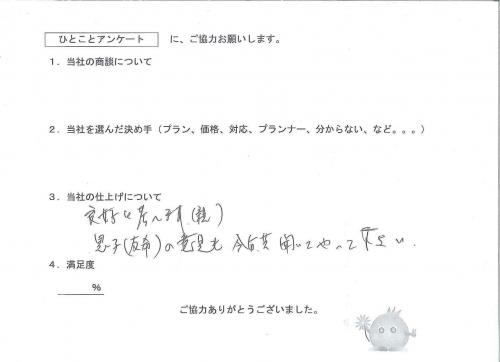 ひとことアンケート に、ご協力お願いします。
１．当社の商談について
２．当社を選んだ決め手（プラン、価格、対応、プランナー、分からない、など。。。）
３．当社の仕上げについて
良好と考へます（親）
息子（友希）の意見も 今后共 聞いてやって下さい.
４．満足度
％
ご協力ありがとうございました。